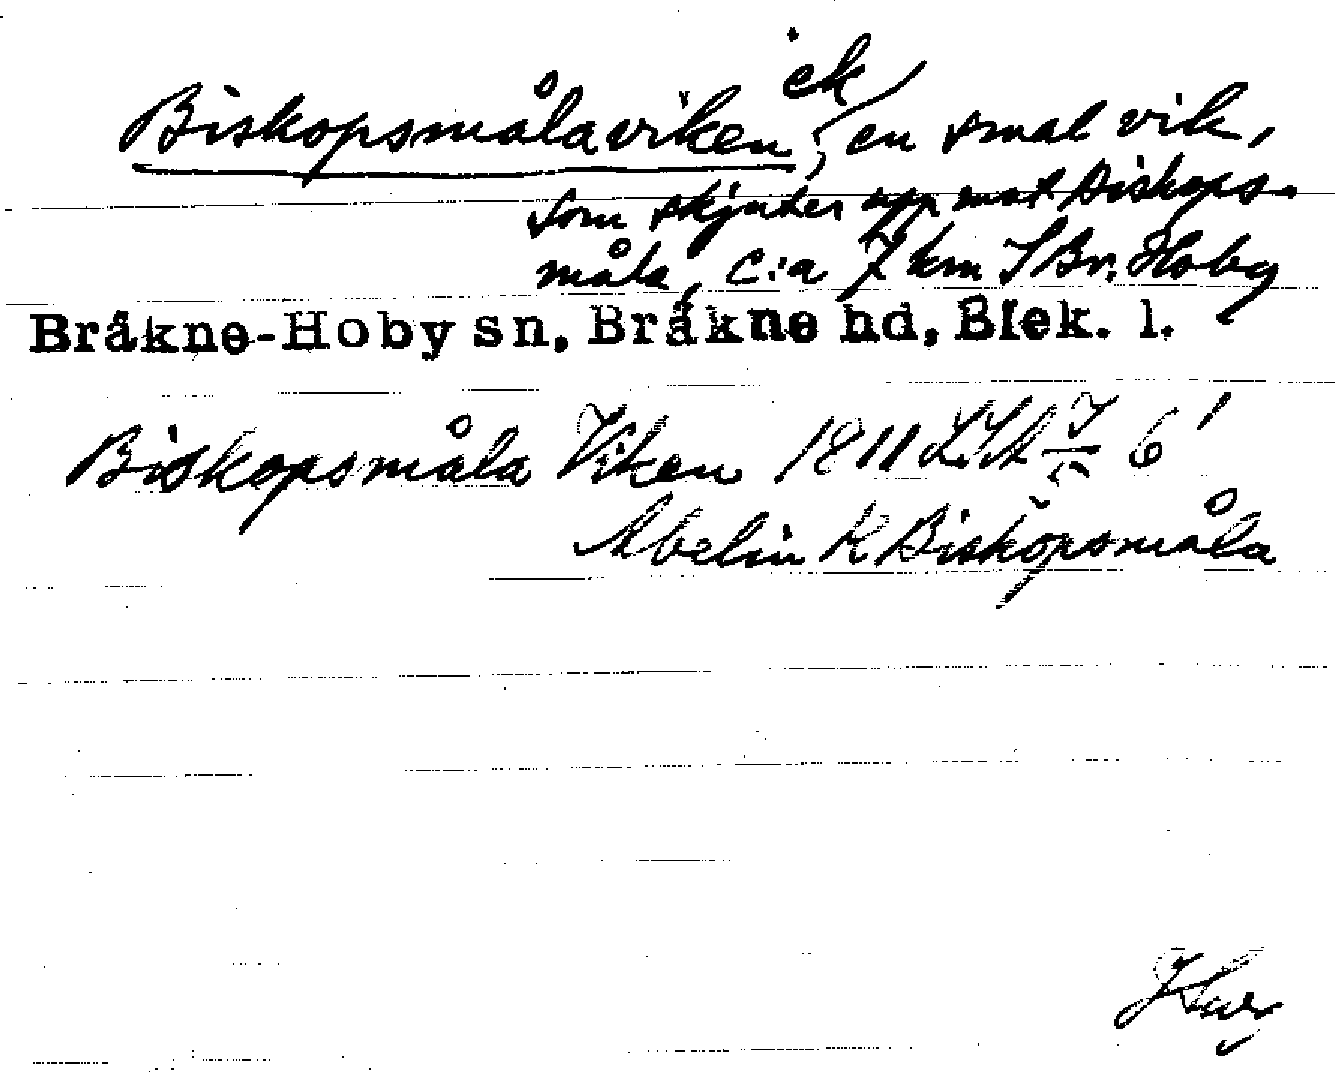 ek
Biskopsmålaviken, en smal vik,
som skjuter upp mot Biskops-
måla, c:a 7 km S Br. Hoby
Bräkne-Hoby sn, Bräkne hd, Blek. l.
Biskopsmåla Viken 1811 LSA 6'
Abelin K Biskopsmåla